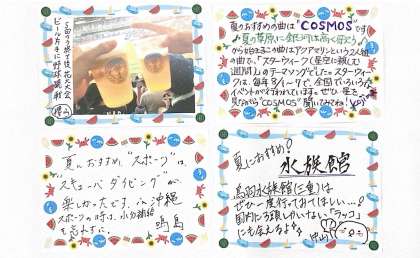 夏のおすすめの曲は"COSMOS"です
♪夏の草原に銀河は高く歌う♪
から始まるこの曲はアクアマリンという2人組
の曲で、「スターウィーク(星空に親しむ
週間)」のテーマソングでした。スターウィー
クは、毎年8/1~7で、全国でいろいろな
イベントが行われています。ぜひ星を
見ながら"COSMOS"聞いてみてね!
ビール片手に野球観戦
夏におすすめ"スポーツ"は、
"スキューバダイビング"が、
楽しかったです。in沖縄
スポーツの時は、水分補給
を忘れずに。
夏におすすめ!
水族館
鳥羽水族館(三重)は
ぜひ一度行ってみてほしい…!
国内に3頭しかいない「ラッコ」
にも会えるよ♪